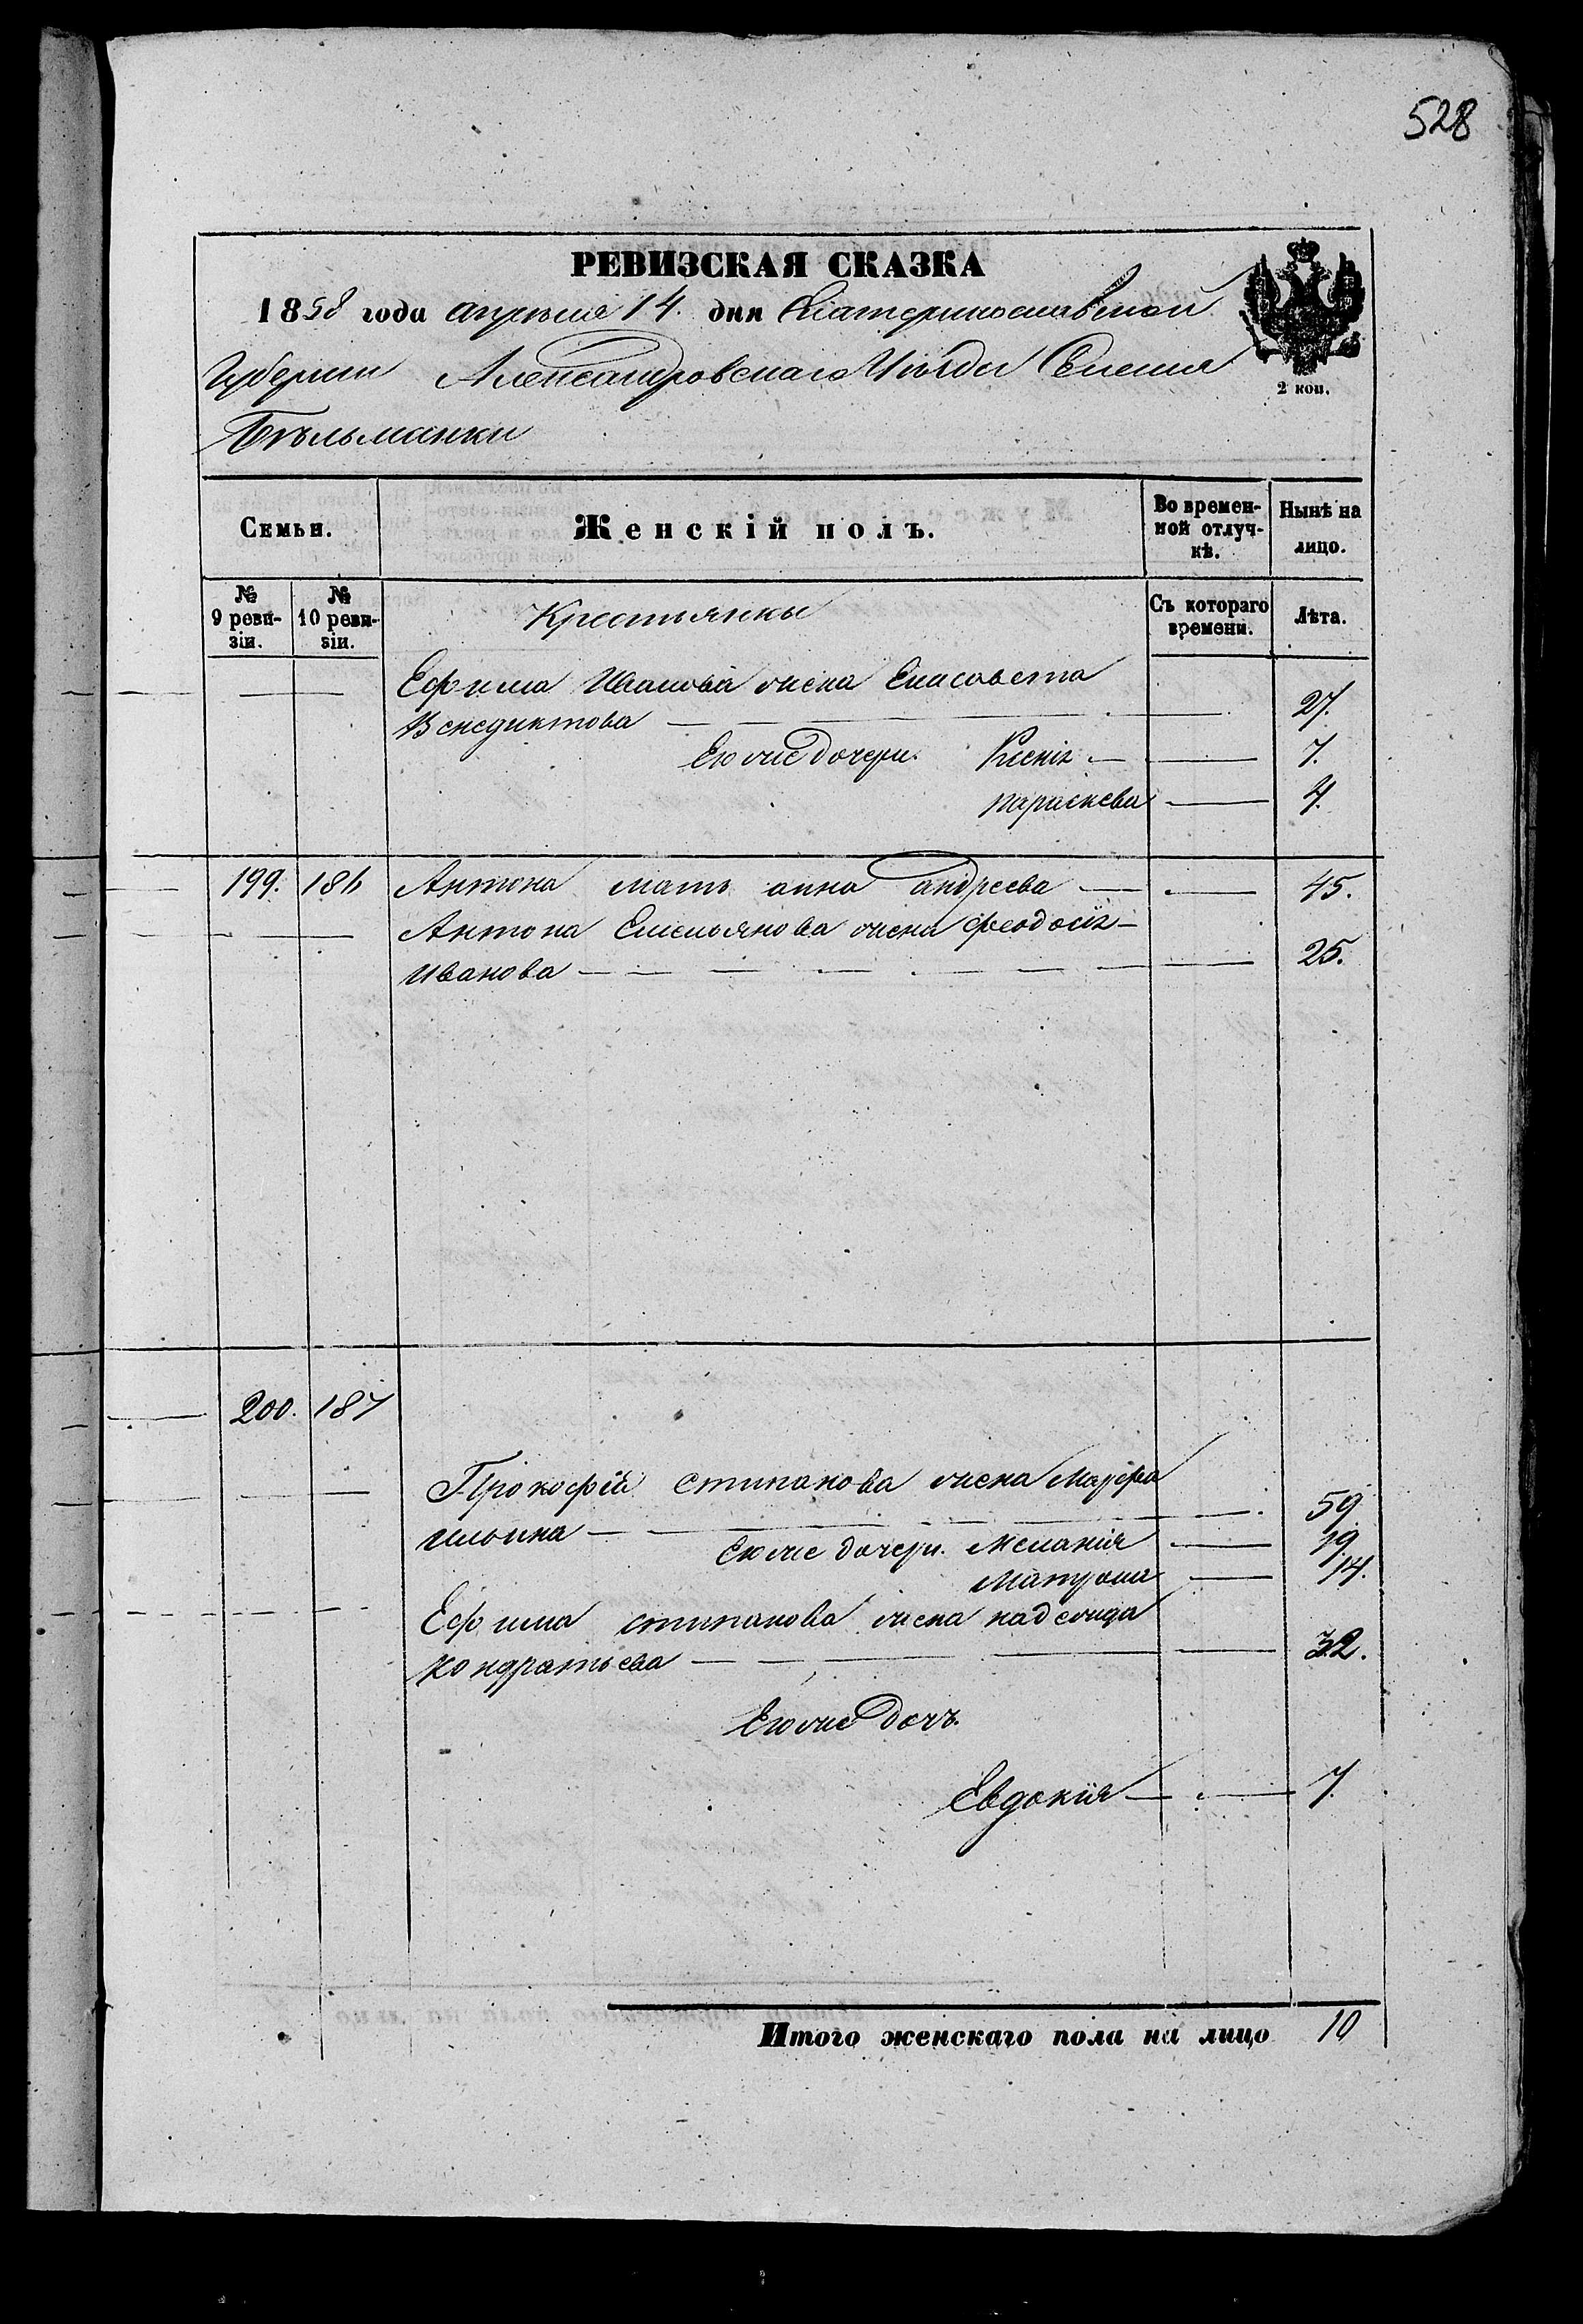 528
РЕВИЗСКАЯ СКАЗКА
1858 года апреля 14. дня Екатеринославской
Губернии Александровскаго Уѣзда Селенія
Бѣльманки
2 коп.
Семьи. Женскій полъ. Во времен-ной отлуч-кѣ. Нынѣ на лицо.
№ 9 реви-зіи. № 10 реви-зіи. Крестьянки Съ котораго времени. Лѣта.
Ефима Иванова жена Елисавета
Венедиктова 27.
Его же дочери. Ксенія 7.
параскева 4.
199. 186 Антона мать анна андреева 45.
Антона Емельянова жена феодосія
Иванова 25.
200. 187
Прокофія стипанова жена Марфа
ильина 59.
Его же дочери. Меланія 19.
Матрона 14.
Ефима стипанова жена надежда
кондратьева 32.
Его же дочь.
Евдокия 7.
Итого женскаго пола на лицо 10